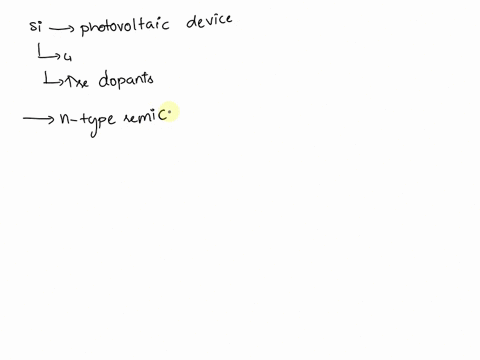 si → photovoltaic device
↳ 4
↳ dopants
→ n-type semic